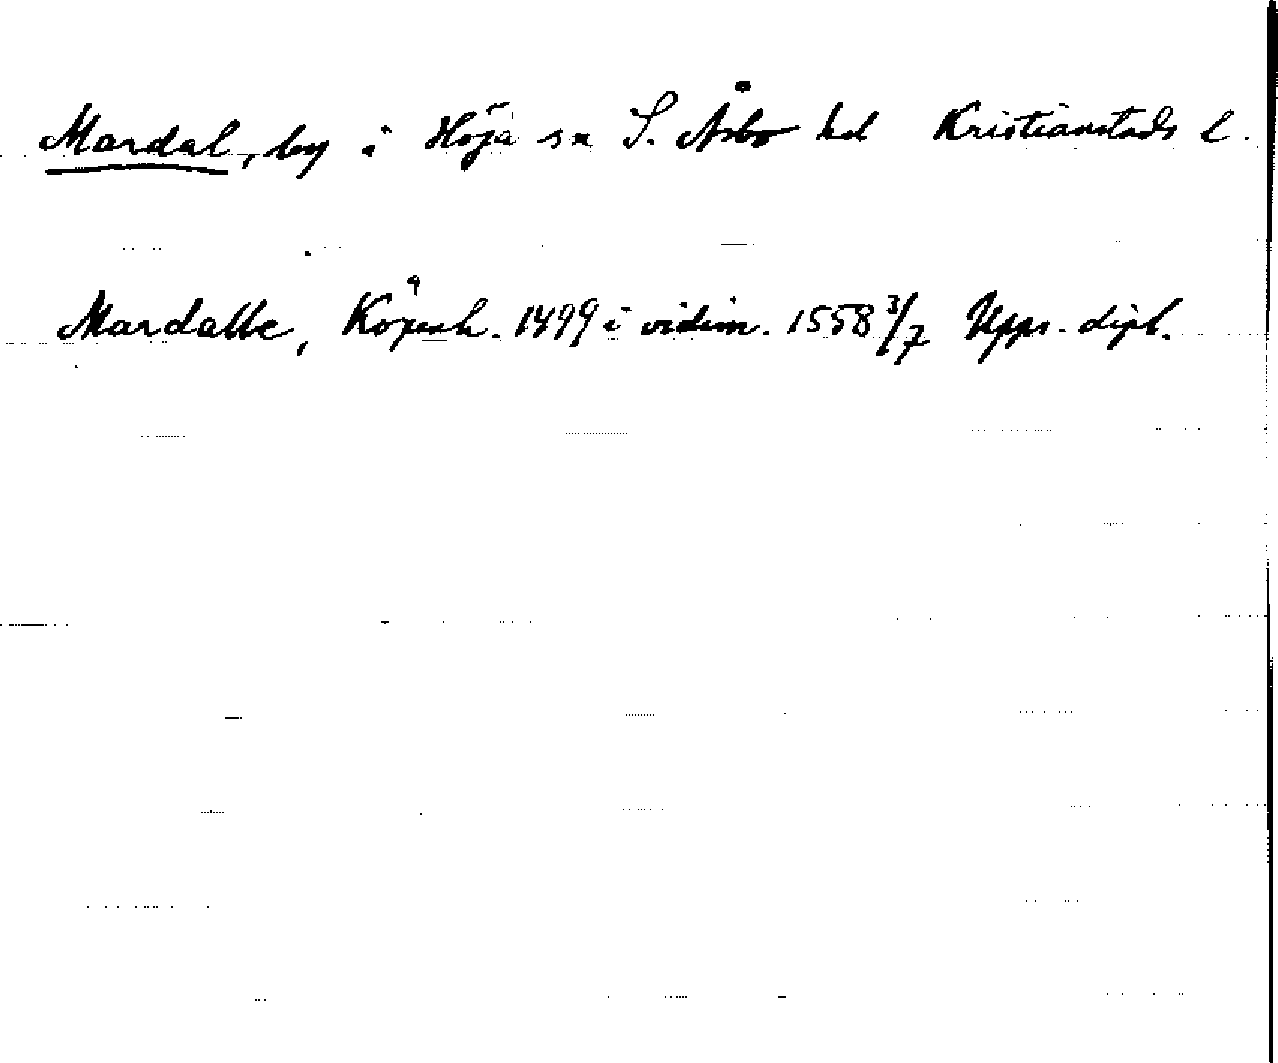 Mardal, by i Höja sn S. Åsbo hd Kristianstads l.
Mardalle, Köpenh. 1499 i vidim. 1558 3/7 Upps. dipl.